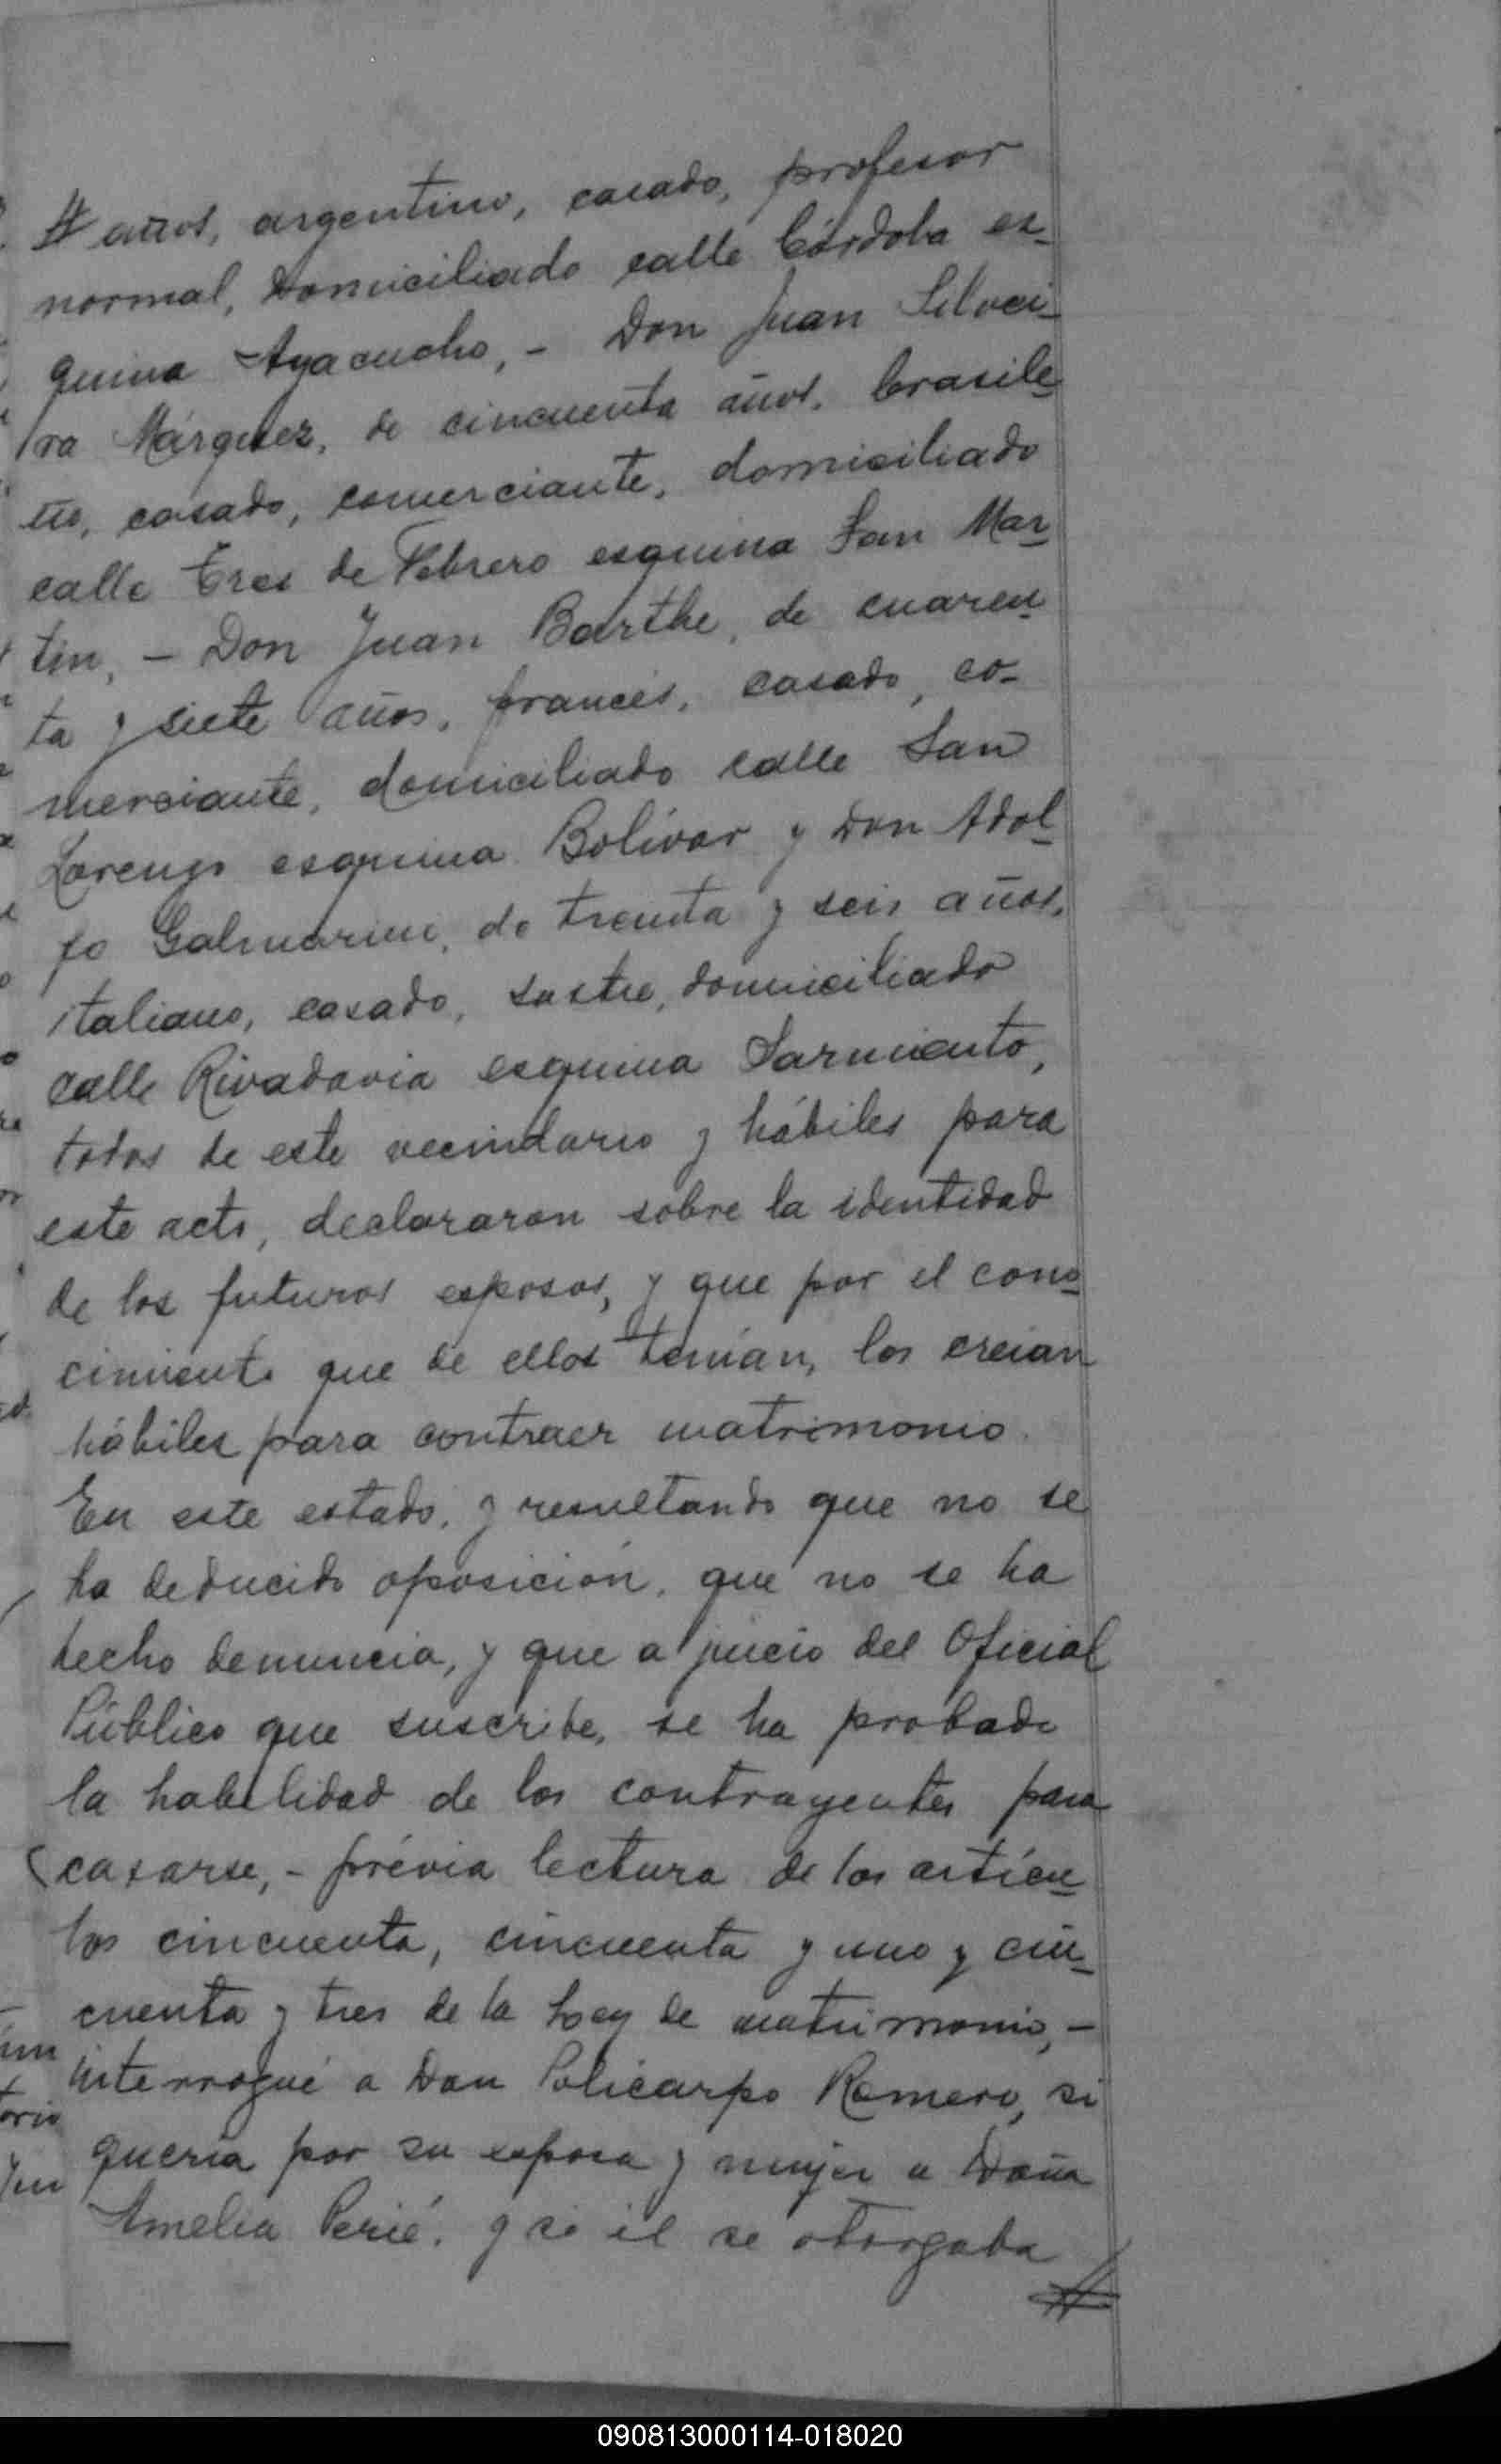 # años, argentino, casado, profesor
normal, domiciliado calle Córdoba es-
quina Ayacucho, - Don Juan Silvei-
ra Márquez, de cincuenta años, brasile-
ño, casado, comerciante, domiciliado
calle Tres de Febrero esquina San Mar-
tin, - Don Juan Barthe, de cuaren-
ta y siete años, francés, casado, co-
merciante, domiciliado calle San
Lorenzo esquina Bolívar y Don Adol-
fo Galmarini, de treinta y seis años,
italiano, casado, sastre, domiciliado
calle Rivadavia esquina Sarmiento,
todos de este vecindario y hábiles para
este acto, declararon sobre la identidad
de los futuros esposos, y que por el cono-
cimiento que de ellos tenían, los creian
hábiles para contraer matrimonio.
En este estado, y resultando que no se
ha deducido oposición, que no se ha
hecho denuncia, y que a juicio del Oficial
Público que suscribe, se ha probado
la habilidad de los contrayentes para
casarse, - prévia lectura de los artícu-
los cincuenta, cincuenta y uno y cin-
cuenta y tres de la Ley de matrimonio, -
interrogué a Don Policarpo Romero, si
quería por su esposa y mujer a Doña
Amelia Perié, y si él se otorgaba
#
090813000114-018020